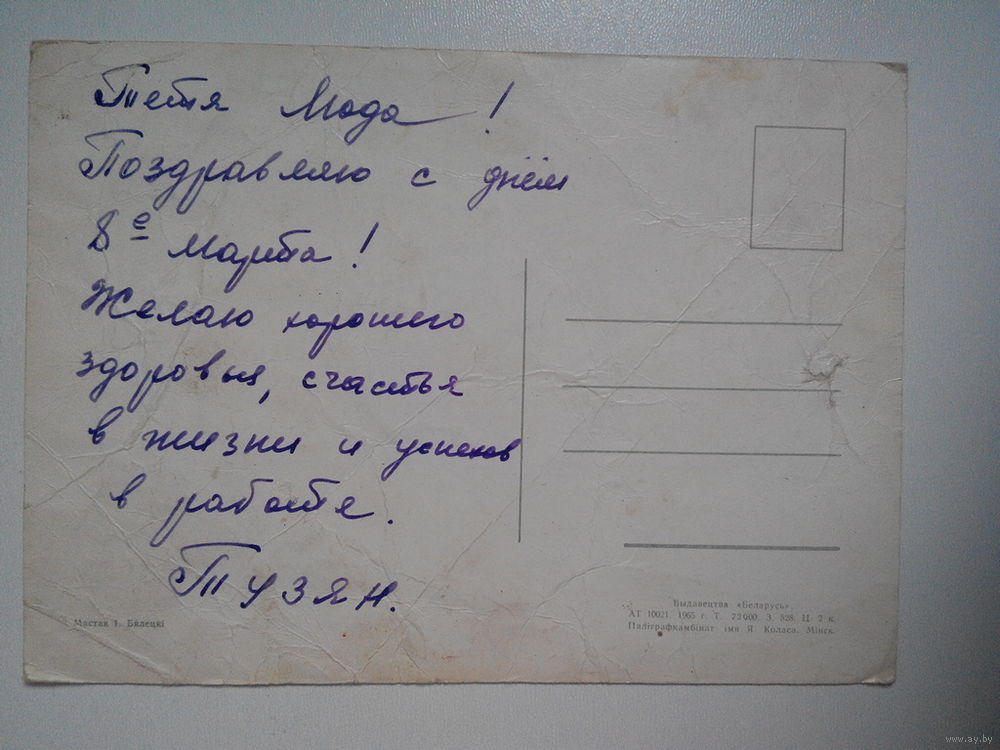 Тетя Мода!
Поздравляю с днём
8е марта!
Желаю хорошего
здоровья, счастья
в жизни и успехов
в работе.
Тузян.
Мастак І. Бялецкі
Выдавецтва «Беларусь».
АТ 10021. 1965 г. Т. 72000. З. 528. Ц. 2 к.
Паліграфкамбінат імя Я. Коласа. Мінск.
www.ay.by